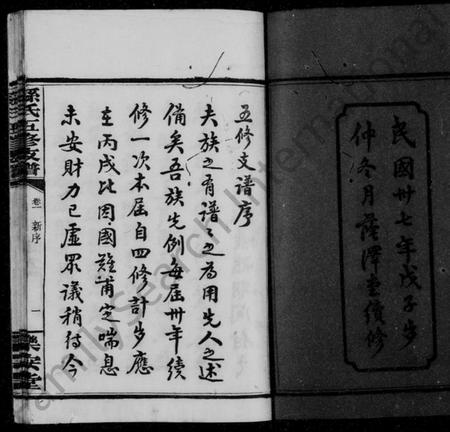 民國卅七年戊子歲
仲冬月蔭澤堂續修
五修支譜序
夫族之有譜譜之為用先人之述
備矣吾族先例每屆卅年續
修一次本屆自四修計歲應
在丙戌比因國難甫定喘息
未安財力已虛眾議稍待今
孫氏五修支譜
卷一 新序
一
樂安堂
FamilySearch International